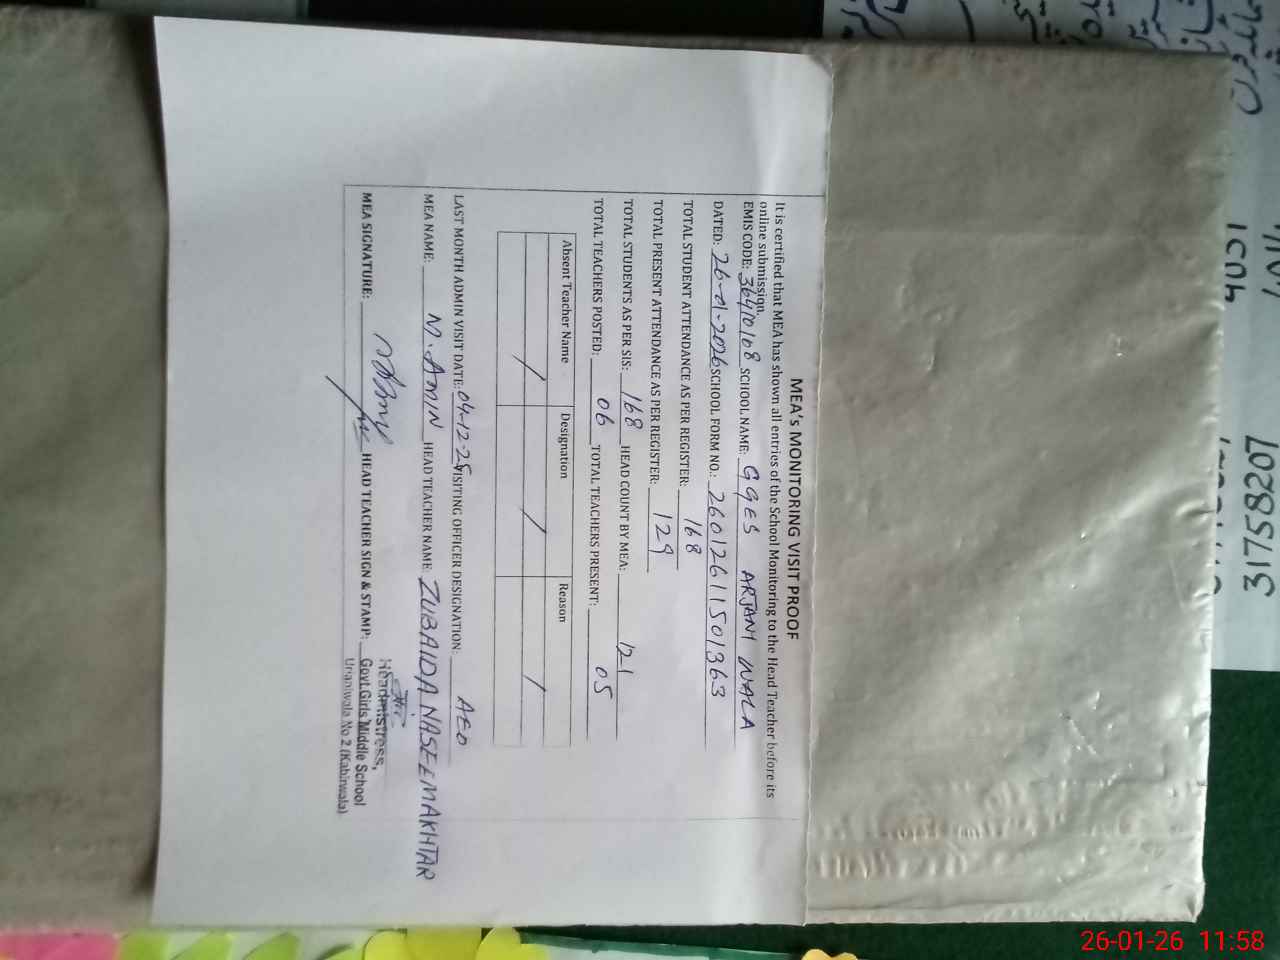 MEA's MONITORING VISIT PROOF
It is certified that MEA has shown all entries of the School Monitoring to the Head Teacher before its
online submission.
EMIS CODE: 36410108 SCHOOL NAME: GGES ARJANI WALA
DATED: 26-01-2026 SCHOOL FORM NO.: 26012611501363
TOTAL STUDENT ATTENDANCE AS PER REGISTER: 168
TOTAL PRESENT ATTENDANCE AS PER REGISTER: 129
TOTAL STUDENTS AS PER SIS: 168 HEAD COUNT BY MEA: 121
TOTAL TEACHERS POSTED: 06 TOTAL TEACHERS PRESENT: 05
Absent Teacher Name Designation Reason
/ / /
LAST MONTH ADMIN VISIT DATE: 04-12-25 VISITING OFFICER DESIGNATION: AEO
MEA NAME: M. AMIN HEAD TEACHER NAME: ZUBAIDA NASEEM AKHTAR
MEA SIGNATURE: HEAD TEACHER SIGN & STAMP:
Headmistress,
Govt.Girls Middle School
Urianiwala No 2 (Kabirwala)
31758207
26-01-26 11:58